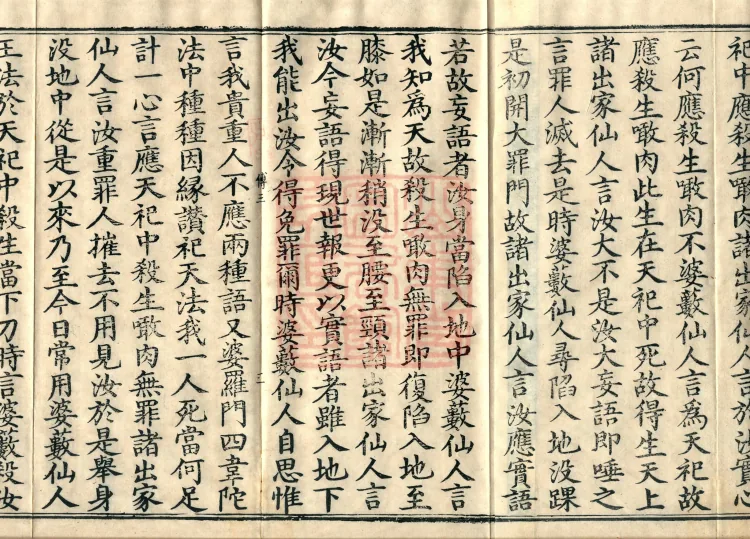 祀中應殺生噉肉諸出家仙人言於汝實心
云何應殺生噉肉不婆藪仙人言為天祀故
應殺生噉肉此生在天祀中死故得生天上
諸出家仙人言汝大不是汝大妄語即唾之
言罪人滅去是時婆藪仙人尋陷入地没踝
是初開大罪門故諸出家仙人言汝應實語
若故妄語者汝身當陷入地中婆藪仙人言
我知為天故殺生噉肉無罪即復陷入地至
膝如是漸漸稍没至腰至頸諸出家仙人言
汝今妄語得現世報更以實語者雖入地下
我能出汝今得免罪爾時婆藪仙人自思惟
三 二
言我貴重人不應兩種語又婆羅門四韋陀
法中種種因緣讚祀天法我一人死當何足
計一心言應天祀中殺生噉肉無罪諸出家
仙人言汝重罪人摧去不用見汝於是舉身
没地中從是以來乃至今日常用婆藪仙人
王法於天祀中殺生當下刀時言婆藪殺汝